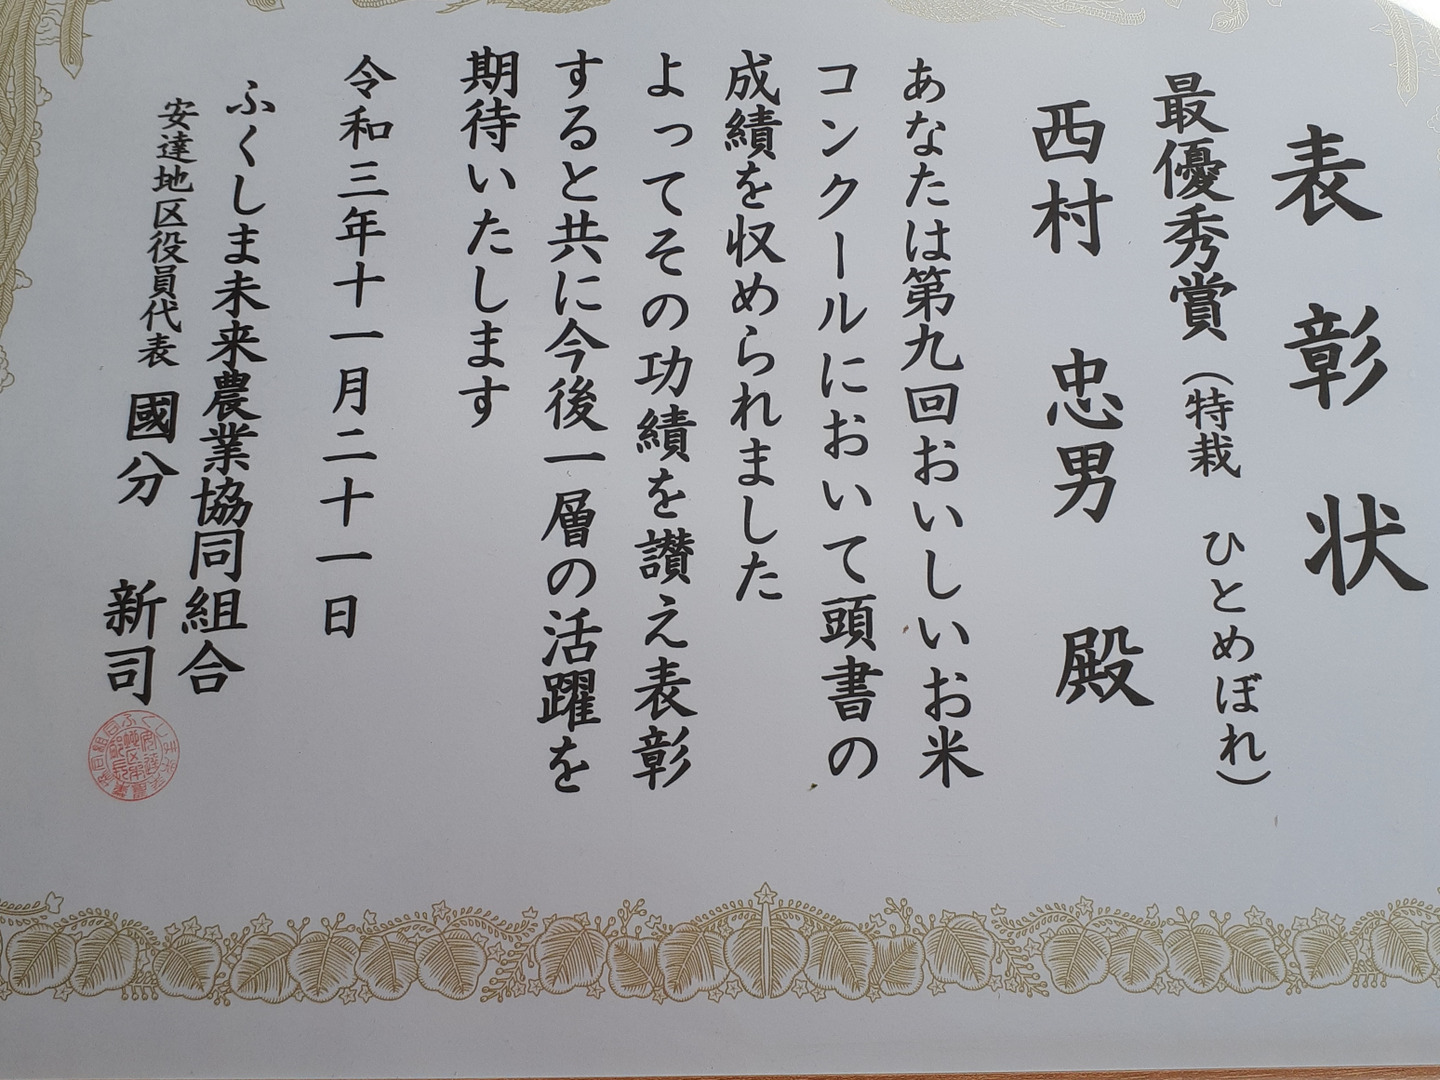 表彰状
最優秀賞（特栽 ひとめぼれ）
西村 忠男 殿
あなたは第九回おいしいお米
コンクールにおいて頭書の
成績を収められました
よってその功績を讃え表彰
すると共に今後一層の活躍を
期待いたします
令和三年十一月二十一日
ふくしま未来農業協同組合
安達地区役員代表 國分 新司